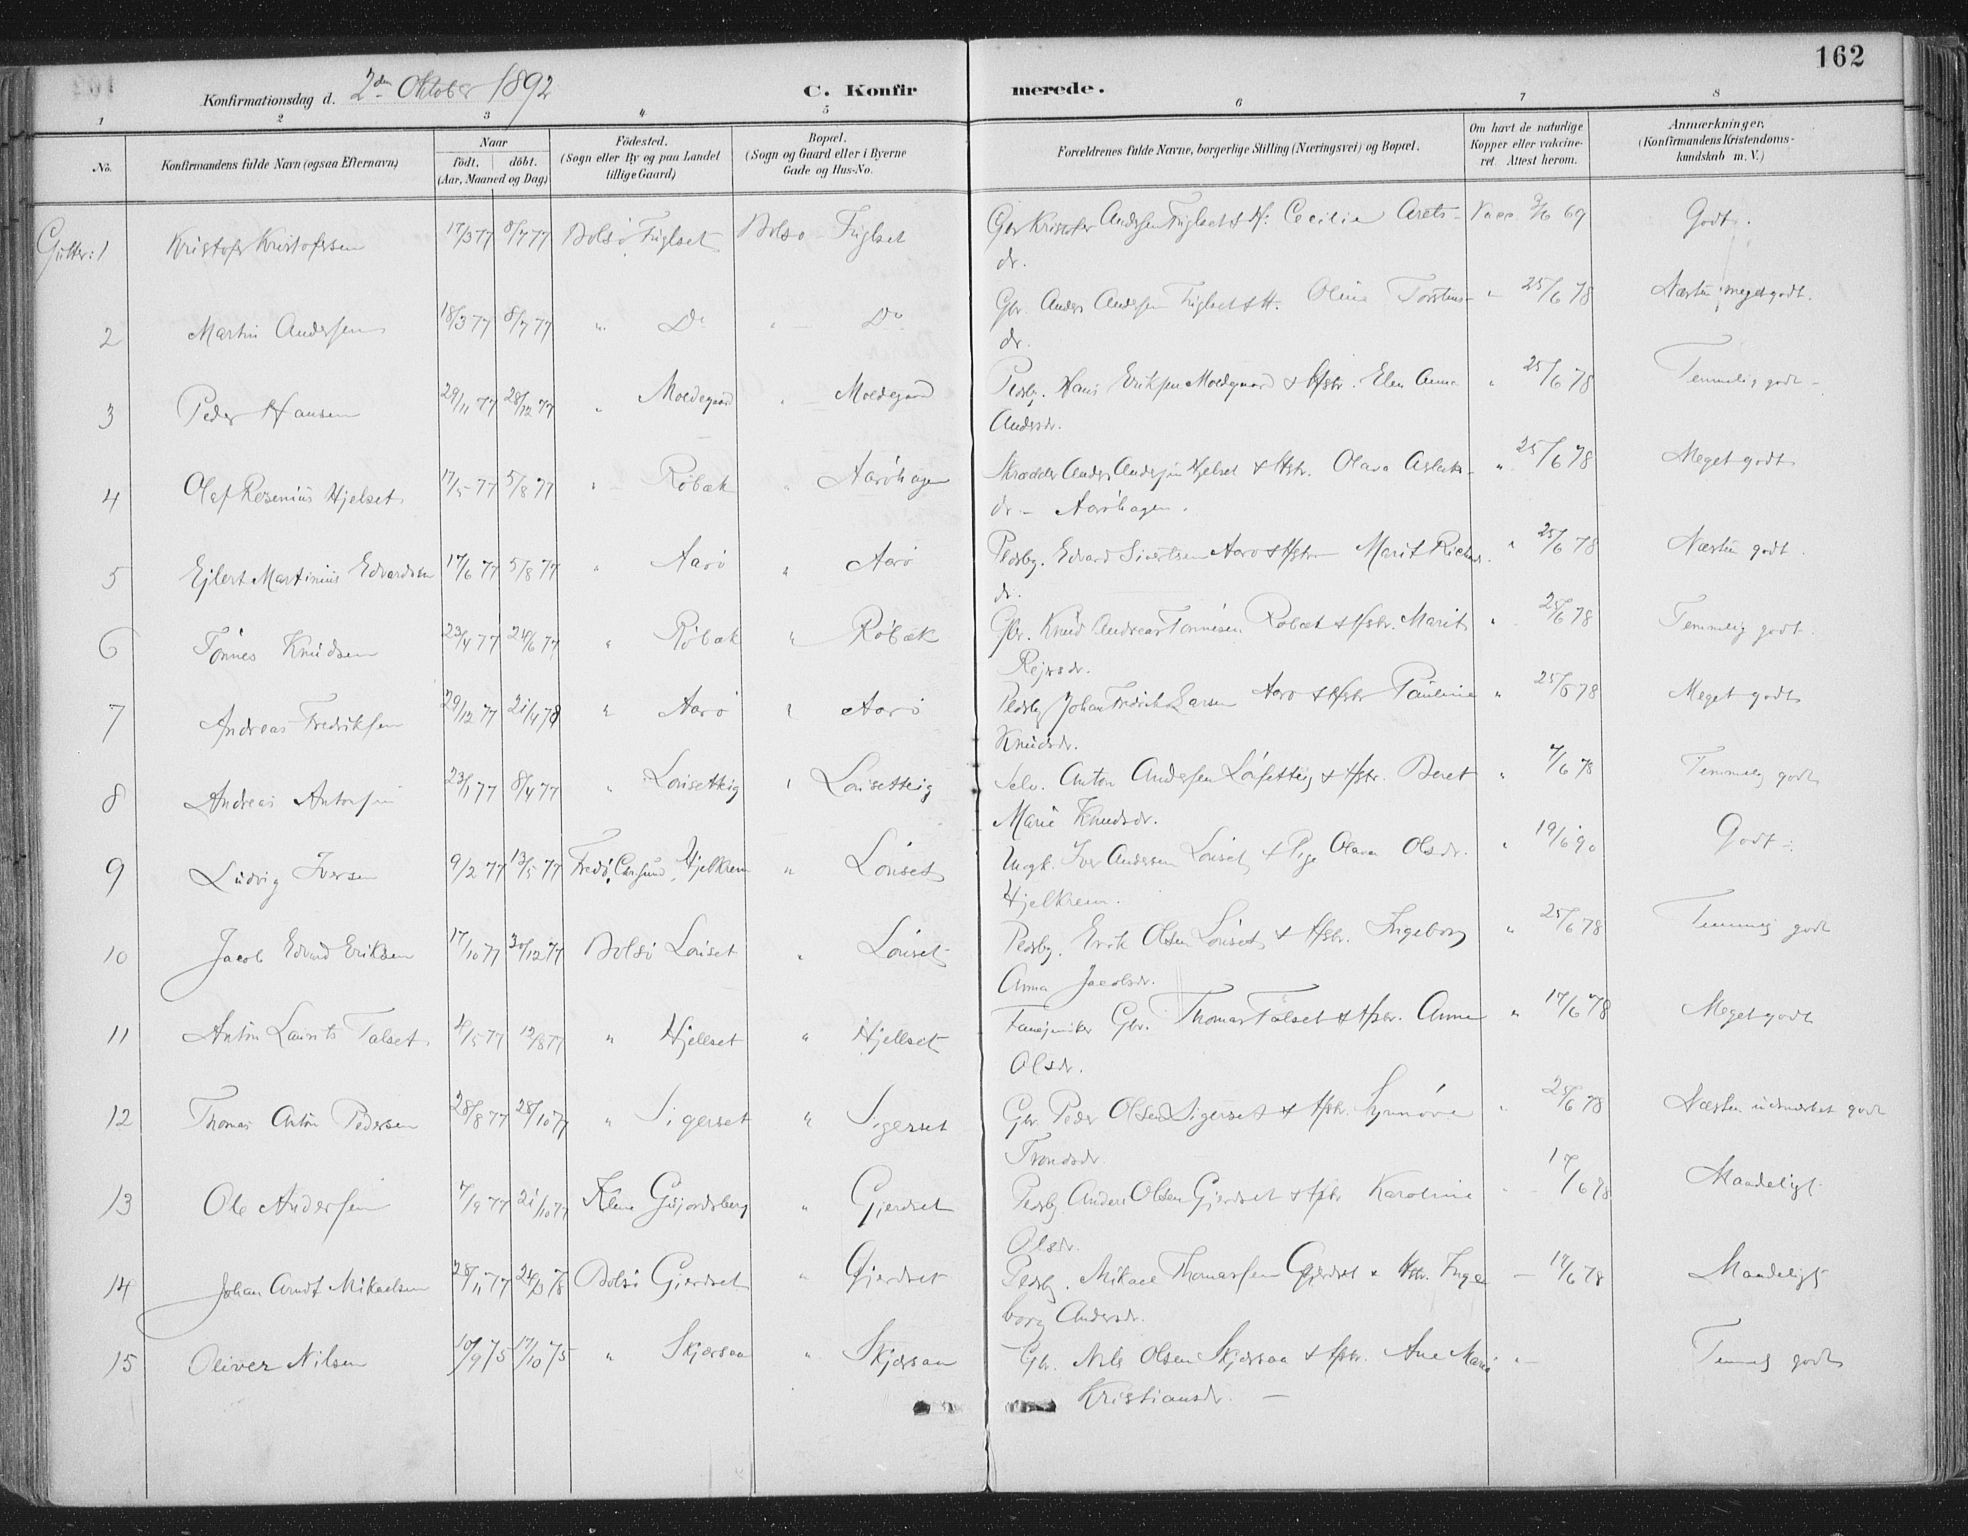 162
Konfirmationsdag d. 2den Oktober 1892 C. Konfir merede.
1 2 3 4 5 6 7 8
No. Konfirmandens fulde Navn (ogsaa Efternavn) Naar födt. döbt. (Aar, Maaned og Dag) Födested. (Sogn eller By og paa Landet tillige Gaard) Bopæl. (Sogn og Gaard eller i Byerne Gade og Hus-No. Forældrenes fulde Navne, borgerlige Stilling (Næringsvei) og Bopæl. Om havt de naturlige Kopper eller vakcineret. Attest herom. Anmærkninger, (Konfirmandens Kristendomskundskab m. V.)
Gutter: 1 Kristofer Kristofersen 17/3 77 8/7 77 Bolsö Fuglset Bolsö Fuglset Gbr Kristofer Andersen Fuglset & H: Cecilie Arets- Vacc 69 Godt.
dr.
2 Martin Andersen 18/3 77 8/7 77 " Do " Do Gbr. Anders Andersen Fuglset & H. Oline Torstens- " 25/6 78 Næsten meget godt.
dr.
3 Peder Hansen 29/11 77 28/12 77 " Moldegaard Moldegaard Pladsby. Hans Eriksen Moldegaard & Hstr. Elen Anna " 25/6 78 Temmelig godt
Andersdr.
4 Olaf Rosenius Hjelset 17/5 77 5/8 77 " Röbæk " Aaröhagen Skrædder Anders Andersen Hjelset & Hstr. Olava Aslaks- " 25/6 78 Meget godt
dr. - Aaröhagen.
5 Ejlert Martinius Edvardsen 17/6 77 5/8 77 " Aarö " Aarö Pladsby. Edvard Sivertsen Aarö & Hstr Marit Richards- " 25/6 78 Næsten godt.
dr.
6 Tönnes Knudsen 23/4 77 24/6 77 " Röbæk " Röbæk Gbr. Knud Andreas Tönnesen Röbæk & Hstr. Marit " 25/6 78 Temmelig godt.
Rejersdr.
7 Andreas Fredriksen 29/12 77 21/4 78 " Aarö " Aarö Pladsby Johan Fredrik Larsen Aarö & Hstr Pauline " 25/6 78 Meget godt
Knudsdr.
8 Andreas Antonsen 23/1 77 8/4 77 " Lönsetteig " Lönsetteig Selv. Anton Andersen Lönsetteig & Hstr. Beret " 78 Temmelig godt
Marie Knudsdr.
9 Ludvig Iversen 9/2 77 13/5 77 Fredö, Hjelkrem " Lönset Ungk. Iver Andersen Lönset & Pige Olava Olsdr. " 19/6 90 Godt
Hjelkrem.
10 Jacob Edvard Eriksen 17/10 77 30/12 77 Bolsö Lönset " Lönset Pladsby. Erik Olsen Lönset & Hstr. Ingeborg " 25/6 78 Temmelig godt
Anna Jacobsdr.
11 Anton Laurits Talset 4/5 77 12/8 77 " Hjellset " Hjellset Gbr. Thomas Talset & Hstr. Anne " 17/6 78 Meget godt
Olsdr.
12 Thomas Anton Pedersen 28/8 77 28/10 77 " Sigerset " Sigerset Gbr. Peder Olsen Sigerset & Hstr. Synnöve " 25/6 78 Næsten udmærket godt
Trondsdr.
13 Ole Andersen 7/9 77 21/10 77 Kleve Gujordsberg " Gjerdset Pladsby Anders Olsen Gjerdset & Hstr Karoline 17/6 78 Maadeligt
Olsdr.
14 Johan Arndt Mikaelsen 28/11 77 24/3 78 Bolsö Gjerdset " Gjerdset Pladsby. Mikael Thomassen Gjerdset & Hstr. Inge 17/6 78 Maadeligt
borg Andersdr.
15 Oliver Nilsen 10/9 75 17/10 75 " Skjærsaa " Skjærsaa Gbr. Nils Olsen Skjærsaa & Hstr. Ane Marie " Temmelig godt
Kristiansdr.